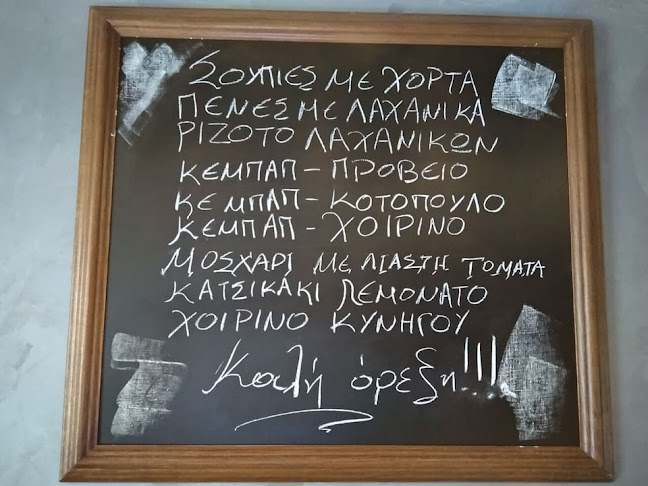 ΣΟΥΠΙΕΣ ΜΕ ΧΟΡΤΑ
ΠΕΝΕΣ ΜΕ ΛΑΧΑΝΙΚΑ
ΡΙΖΟΤΟ ΛΑΧΑΝΙΚΩΝ
ΚΕΜΠΑΠ - ΠΡΟΒΕΙΟ
ΚΕΜΠΑΠ - ΚΟΤΟΠΟΥΛΟ
ΚΕΜΠΑΠ - ΧΟΙΡΙΝΟ
ΜΟΣΧΑΡΙ ΜΕ ΛΙΑΣΤΗ ΤΟΜΑΤΑ
ΚΑΤΣΙΚΑΚΙ ΛΕΜΟΝΑΤΟ
ΧΟΙΡΙΝΟ ΚΥΝΗΓΟΥ
Καλή όρεξη!!!